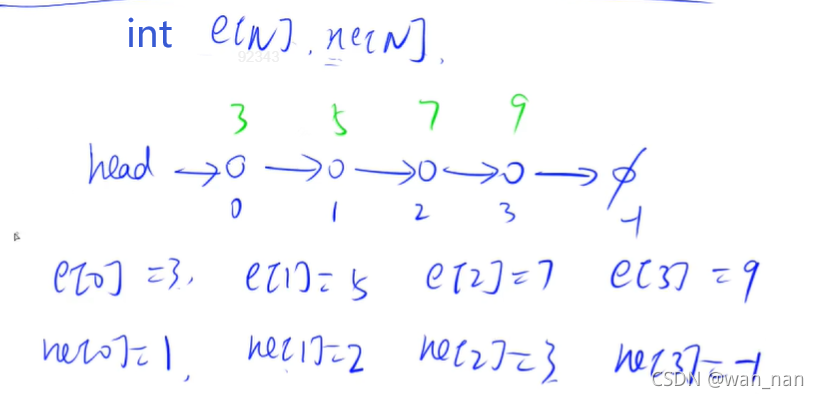 int e[N], ne[N],
92343
3 5 7 9
head → o → o → o → o → ∅
0 1 2 3 -1
e[0] =3, e[1]= 5 e[2]=7 e[3] = 9
ne[0]=1, ne[1]=2 ne[2]=3 ne[3]=-1
CSDN @wan_nan